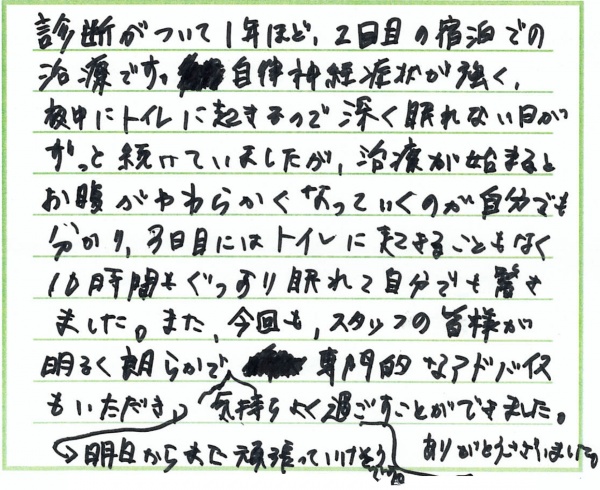 診断がついて1年ほど、2回目の宿泊での
治療です。自律神経症状が強く、
夜中にトイレに起きるので深く眠れない日が
ずっと続いていましたが、治療が始まると
お腹がやわらかくなっていくのが自分でも
分かり、3日目にはトイレに起きることもなく
10時間もぐっすり眠れて自分でも驚き
ました。また、今回も、スタッフの皆様が
明るく朗らかで専門的なアドバイス
もいただき、気持ちよく過ごすことができました。
明日からまた頑張っていけそう
です。
ありがとうございました。